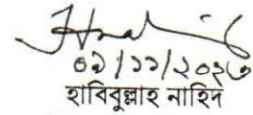 ০৯/১১/২০২৩
হাবিবুল্লাহ নাহিদ